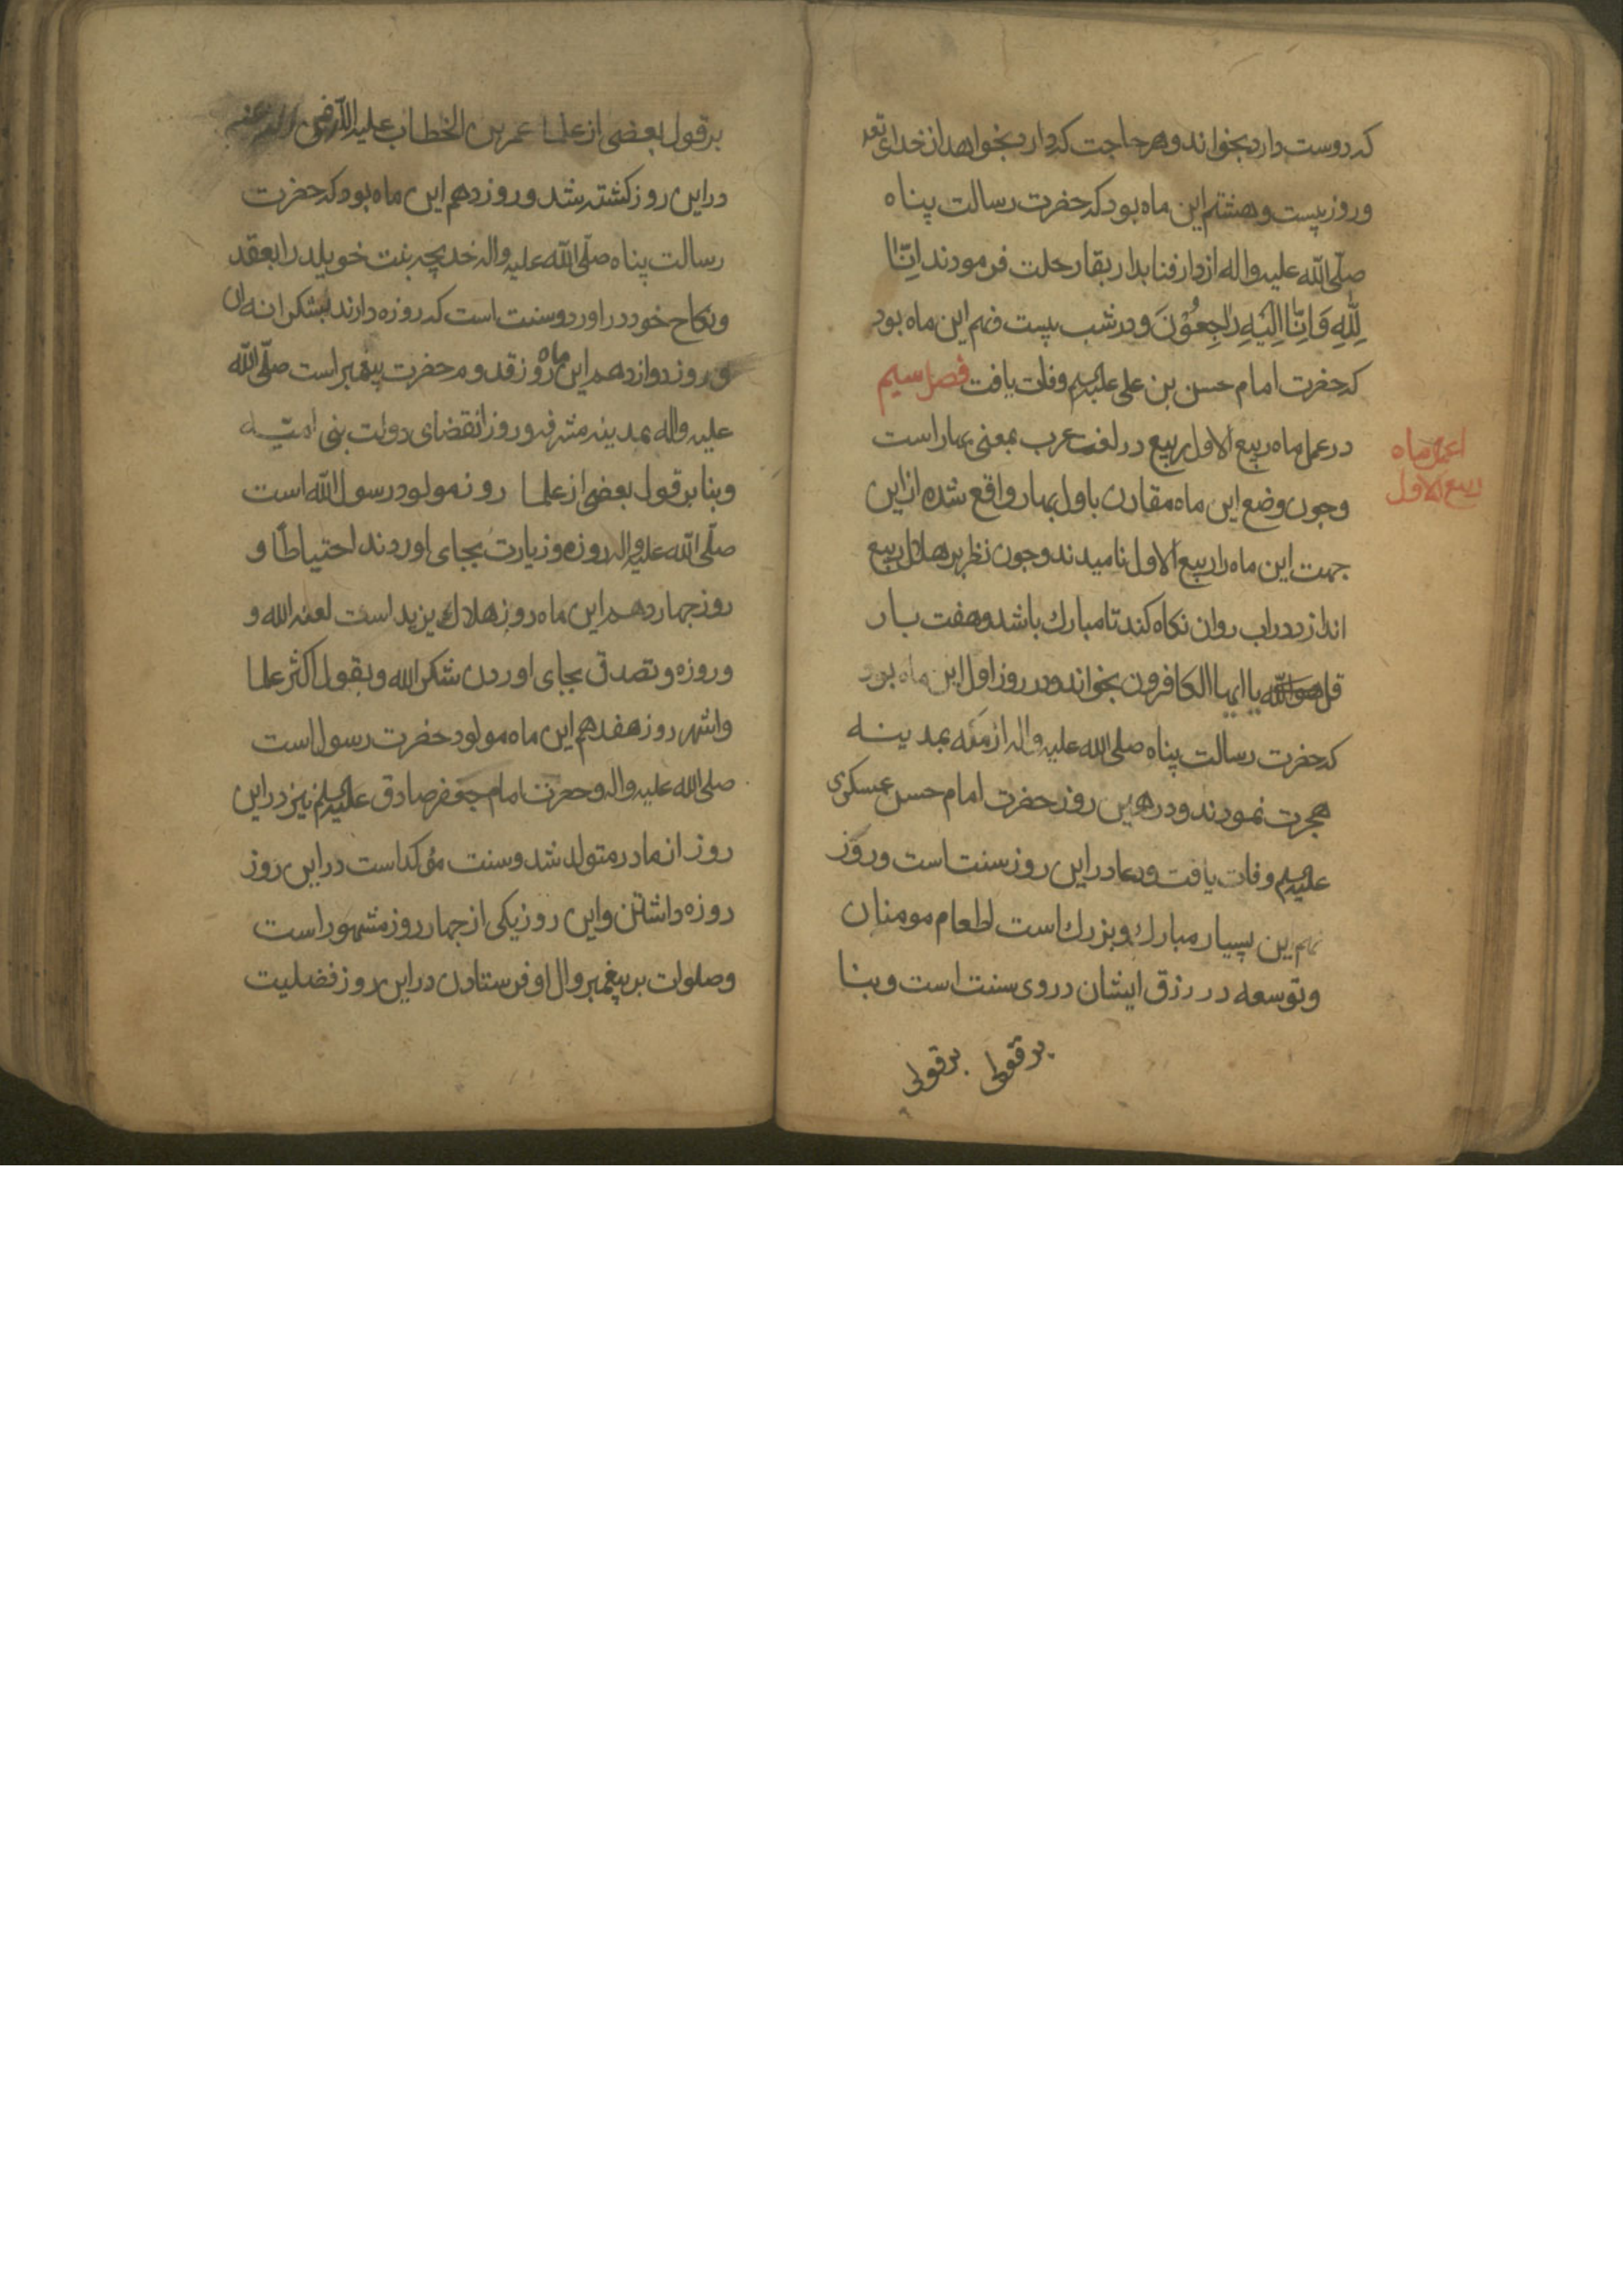 که دوست دارد بخواند و هر حاجت که دارد بخواهد از خدای تعه
و روز بیست و هشتم این ماه بود که حضرت رسالت پناه
صلّی الله علیه واله از دار فنا بدار بقا رحلت فرمودند اِنّا
لِلّٰهِ وَ اِنّا اِلَیْهِ رَاجِعُوْنَ و در شب بیست نهم این ماه بود
که حضرت امام حسن بن علی علیهم وفات یافت فصل سیم
در عمل ماه ربیع الاول ربیع در لغت عرب بمعنی بهار است
اعمال ماه
ربیع الاول
وچون وضع این ماه مقارن باول بهار واقع شده از این
جهت این ماه را ربیع الاول نامیدند وچون نظر بر هلال ربیع
اندازد در اب روان نکاه کند تا مبارك باشد و هفت بار
قل هو الله یا ایها الکافرون بخواند و در روز اول این ماه بود
که حضرت رسالت پناه صلی الله علیه واله از مکه بمدینه
هجرت نمودند و در همین روز حضرت امام حسن عسکری
علیهم وفات یافت و دعا در این روز سنت است و روز
نهم این بسیار مبارك و بزرك است اطعام مومنان
و توسعه در رزق ایشان در وی سنت است و بنا
بر قول بر قول
بر قول بعضی از علما عمر بن الخطاب علیه
در این روز کشته شد و روز دهم این ماه بود که حضرت
رسالت پناه صلّی الله علیه واله خدیجه بنت خویلد را بعقد
ونکاح خود در اورد و سنت است که روزه دارند بشکرانه ان
و روز دوازدهم این ماه روز قدوم حضرت پیغمبر است صلّی الله
علیه واله بمدینه مشرفه و روز انقضای دولت بنی امیّه
وبنا بر قول بعضی از علما روز مولود رسول الله است
صلّی الله علیه واله روزه و زیارت بجای اوردند احتیاطًا و
روز چهاردهم این ماه روز هلاك یزید است لعنه الله و
و روزه و تصدق بجای اوردن شکر الله وبقول اکثر علما
واشهر روز هفدهم این ماه مولود حضرت رسول است
صلی الله علیه واله و حضرت امام جعفر صادق علیهم نیز در این
روز از مادر متولد شد و سنت مؤکد است در این روز
روزه داشتن و این روز یکی از چهار روز مشهور است
وصلوات بر پیغمبر وال او فرستادن در این روز فضلیت